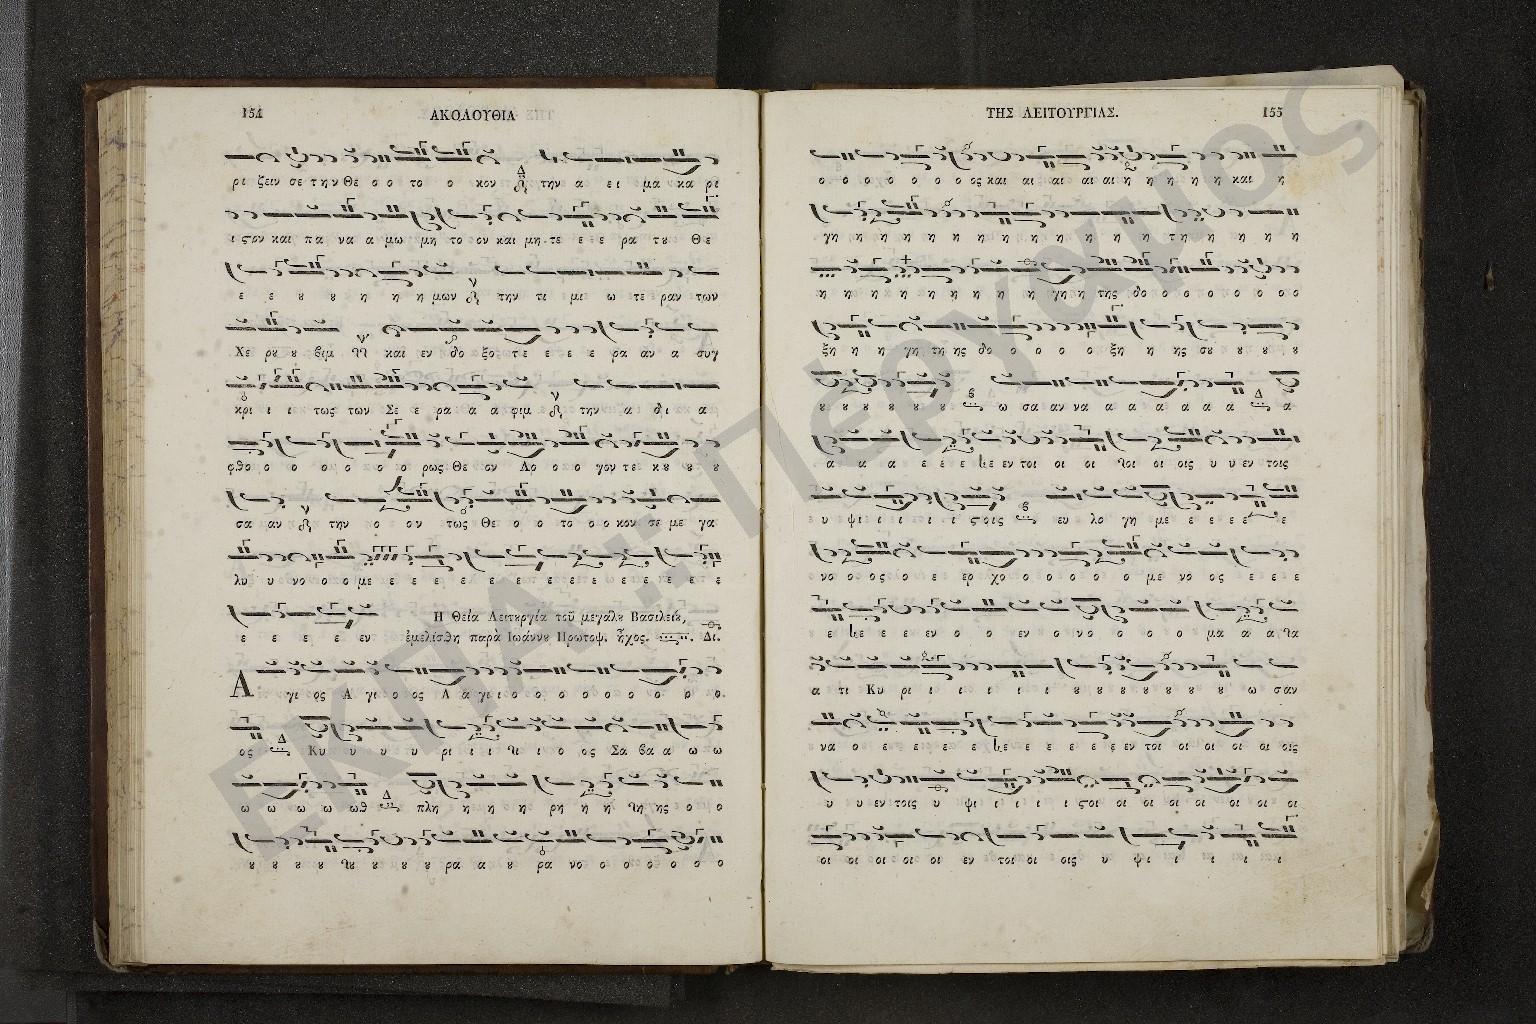 154 ΑΚΟΛΟΥΘΙΑ
ρι ζειν σε την Θε ο ο το ο κον την α ει μα κα ρι
ι ϛον και πα να α μω μη το ον και μη τε ε ε ρα τȣ Θε
ε ε ȣ ȣ η η η μων την τι μι ω τε ραν των
Χε ρȣ ȣ βιμ και εν δο ξο τε ε ε ε ρα αν α συγ
κρι ι ι τως των Σε ε ρα α α φιμ την α δι α
φθο ο ο ο ο ο ο ρως Θε ον Λο ο ο ο γον τε κȣ ȣ ȣ
σα αν την ο ον τως Θε ο ο το ο ο κον σε με γα
λυ υ υ νο ο ο με ε ε ε ε ε ε ε ε ε ε ε ε ε ε ε
ε ε ε ε ε εν
Η Θεία Λειτȣργία τοῦ μεγάλȣ Βασιλείȣ,
ἐμελίσθη παρὰ Ιωάννȣ Πρωτοψ. ἦχος. Δι.
Α γι ος Α γι ο ος Α α γι ι ο ο ο ο ο ο ο ο ο ο
ος Κυ υ υ υ υ ρι ι ι ι ο ος Σα βα α ω ω
ω ω ω ω ωθ πλη η η η η ρη η η ης ο ο
ȣ ȣ ȣ ȣ ȣ ȣ ȣ ȣ ρα α α ȣ ρα νο ο ο ο ο ο ο
ΤΗΣ ΛΕΙΤΟΥΡΓΙΑΣ. 155
ο ο ο ο ο ο ο ος και αι αι αι αι η η η η η και η
γη η η η η η η η η η η η η η τη η η η η
η η η η η η η η η η γη η της δο ο ο ο ο ο ο ο ο
ξη η η η γη τη ης δο ο ο ο ο ξη η ης σȣ ȣ ȣ ȣ
ȣ ȣ ȣ ȣ ȣ ȣ ȣ ω σα αν να α α α α α α α α
α α α α ε ε ε ε εν τοι οι οι οι οι οις υ υ εν τοις
ε υ ψι ι ι ι ι ι ϛοις ευ λο γη με ε ε ε ε ε
νο ο ο ος ο ε ερ χο ο ο ο ο ο ο με νο ος ε ε ε
ε ε ε ε ε εν ο ο εν ο νο ο ο ο ο μα α α
α τι Κυ ρι ι ι ι ι ι ι ȣ ȣ ȣ ȣ ȣ ȣ ȣ ȣ ω σαν
να ο ε ε ε ε ε ε ε ε ε ε ε εν τοι οι οι οι οι οι οις
υ υ εν τοις υ ψι ι ι ι ι ι ϛοι οι οι οι οι οι οι οι οι
οι οι οι οι οι οι εν τοι οι οι οις υ ψι ι ι ι ι ι
ΕΚΠΑ :: Πέργαμος